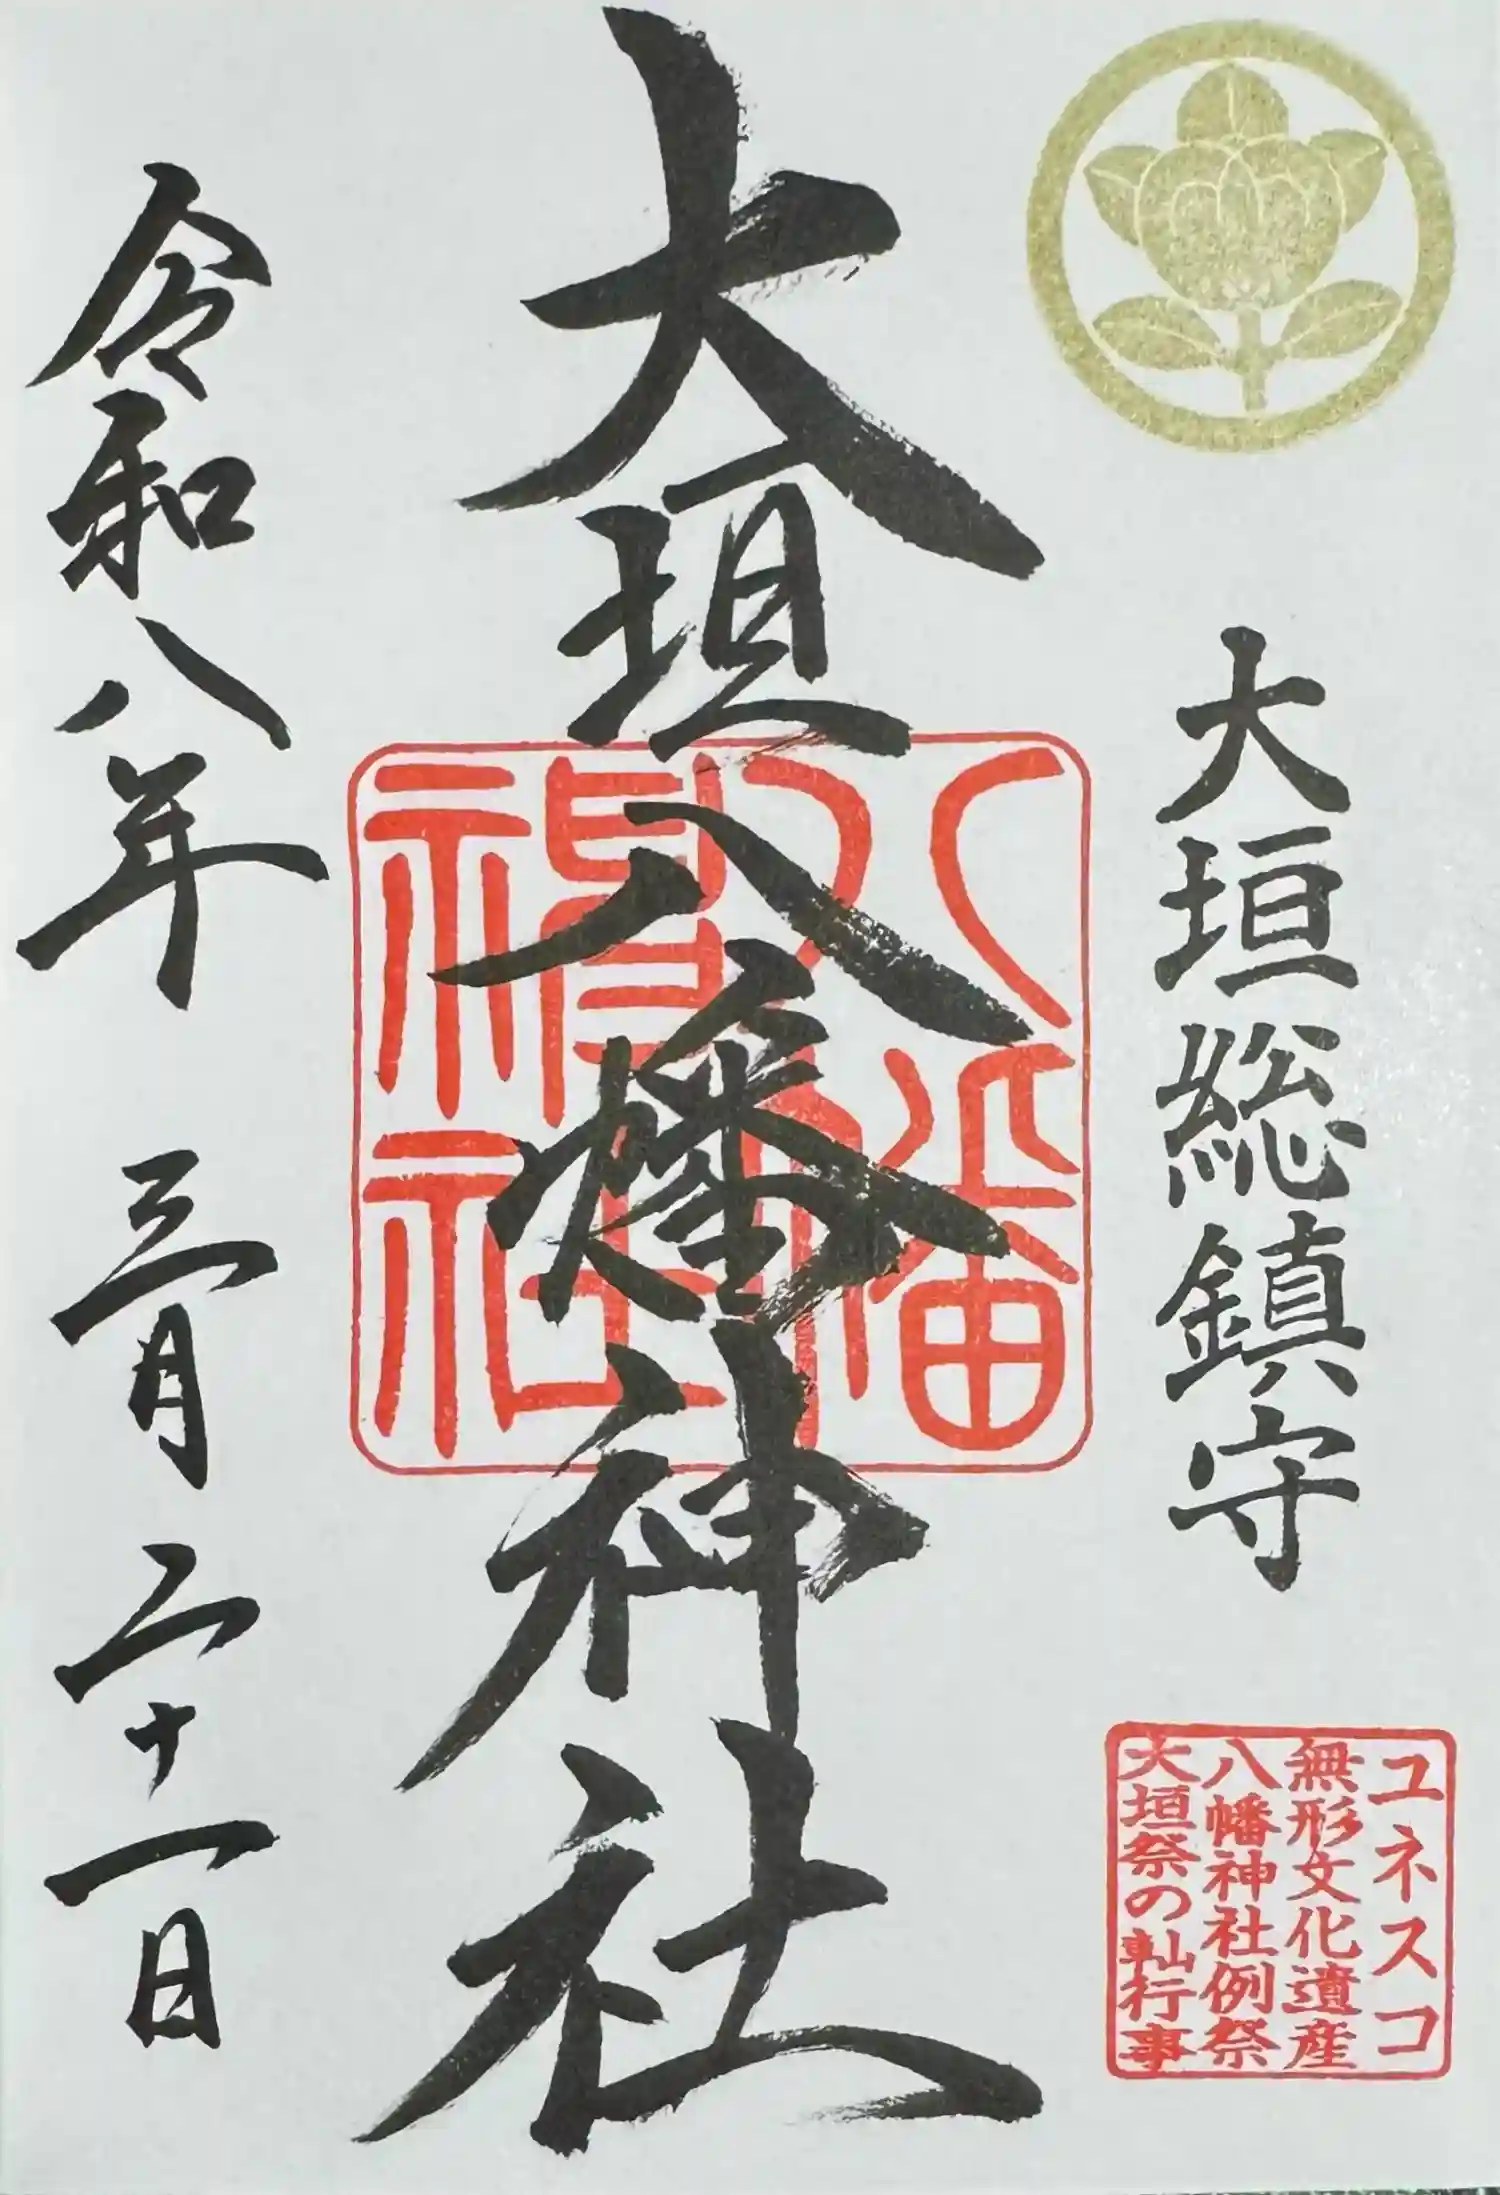 大垣総鎮守
ユネスコ
無形文化遺産
八幡神社例祭
大垣祭の軕行事
大垣八幡神社
八幡
神社
令和八年 三月 二十一日